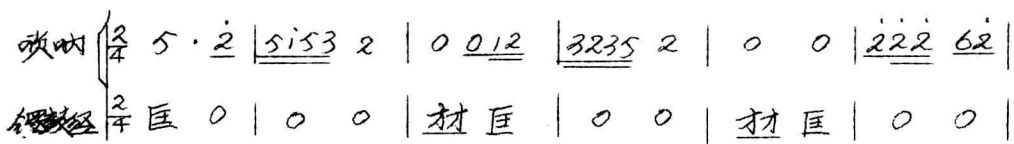 唢呐 2/4 5 · 2̇ | 5i53 2 | 0 012 | 3235 2 | 0 0 | 2̇2̇2̇ 62̇ |
锣鼓经 2/4 匡 0 | 0 0 | 才才 匡 | 0 0 | 才才 匡 | 0 0 |